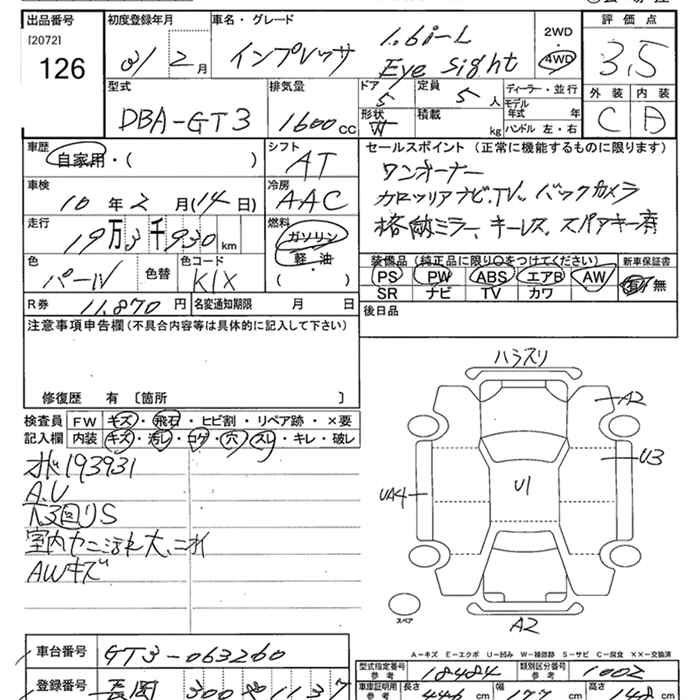 出品番号 初度登録年月 車名・グレード 評価点
[2072]
126
31 2月 インプレッサ 1.6i-L
Eye Sight
2WD
4WD
3.5
型式 排気量 ドア 定員 ディーラー・並行 外装 内装
DBA-GT3 1600cc 5 5人 モデル年式 年
形状 W 積載 kg ハンドル 左・右
C D
車歴 シフト セールスポイント (正常に機能するものに限ります)
自家用・( ) AT ワンオーナー
車検 冷房 カロッツリアナビ.TV.バックカメラ
10年2月(14日) AAC 格納ミラー.キーレス.スペアキー有
走行 燃料
19万3千930km ガソリン
軽・油
( )
装備品 (純正品に限り○をつけてください) 新車保証書
色 色替 色コード PS PW ABS エアB AW 有・無
パール K1X SR ナビ TV カワ
R券 11,870円 名変通知期限 月 日 後日品
注意事項申告欄(不具合内容等は具体的に記入して下さい)
修復歴 有 〔箇所 〕
検査員 FW キズ・飛石・ヒビ割・リペア跡・×要
記入欄 内装 キズ・汚レ・コゲ・穴・スレ・キレ・破レ
193931
A.U
S
室内ヤニ汚れ大、ニオイ
AWキズ
ハラスリ
A2
U3
U1
UA4
A2
スペア
A－キズ E－エクボ U－凹み W－補修跡 S－サビ C－腐食 ××－交換済
車台番号 GT3-063260
型式指定番号 参考 18484 類別区分番号 参考 1002
登録番号 長岡 300 1137
車庫証明用 参考 長さ 446cm 幅 177cm 高さ 148cm